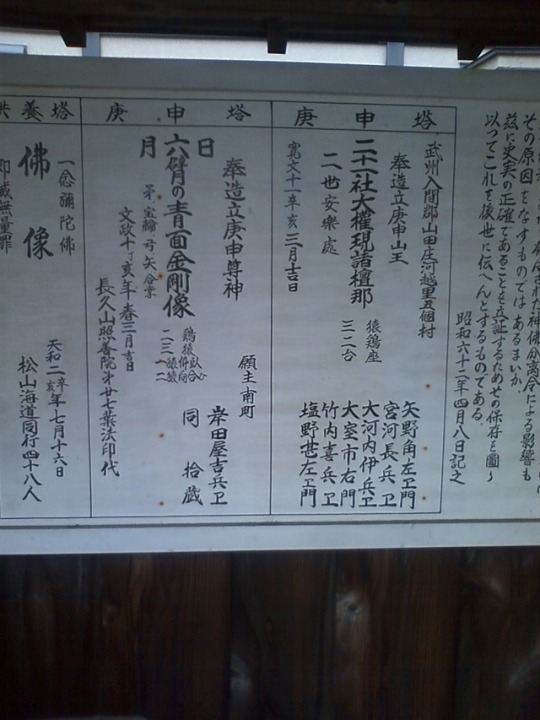 その原因をなすものではあるまいか。
茲に史実の正確であることも立証するためその保存を圖り
以ってこれを後世に伝へんとするものである。
昭和六十二年四月八日記之
庚申塔
武州入間郡山田庄河越里五個村
奉造立庚申山王
二十一社大權現諸壇那
二世安樂處
寛文十一辛亥三月吉日
猿鶏座
三二台
矢野角左ヱ門
宮河長兵ヱ
大河内伊兵ヱ
大室市右門
竹内喜兵ヱ
塩野甚左ヱ門
庚申塔
奉造立庚申尊神
日
六臂の青面金剛像
月
矛宝輪弓矢合掌
文政十丁亥年春三月吉日
長久山照香院才廿七葉法印代
願主南町
岸田屋吉兵ヱ
同拾蔵
供養塔
一念彌陀佛
佛像
即滅無量罪
天和二年七月十六日
松山海道同行四十八人